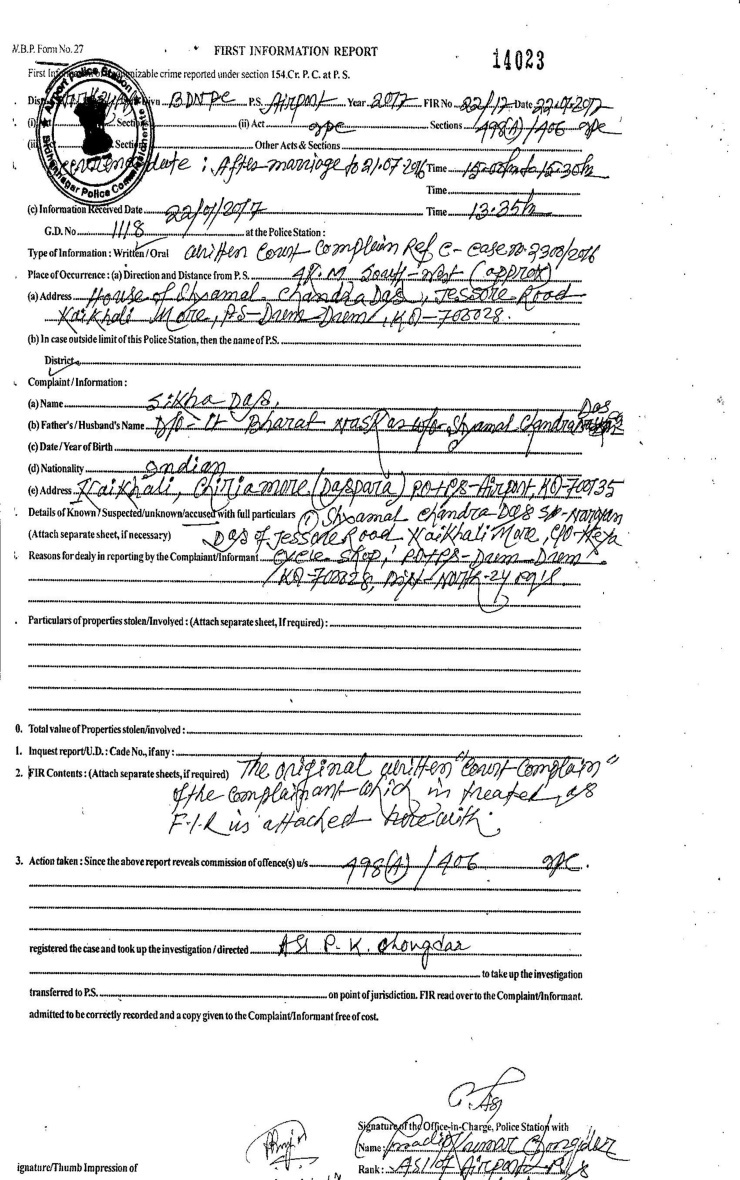 W.B.P. Form No. 27
FIRST INFORMATION REPORT
14023
First Information of cognizable crime reported under section 154.Cr. P. C. at P. S.
Airport Police Station
Bidhannagar Police Commissionerate
BDNPC P.S. Airport Year 2017 FIR No 22/17 Date 22.01.2017
(i) Sections (ii) Act IPC Sections 498(A)/406 IPC
Other Acts & Sections
date : After marriage to 21.07.2016 Time 15.00 hrs to 15.30 hrs
Time
(c) Information Received Date 22/01/2017 Time 13.35 hr
G.D. No 1118 at the Police Station :
Type of Information : Written / Oral Written Court Complain Ref C- Case no 3300/2016
Place of Occurrence : (a) Direction and Distance from P. S. 4K.M South-West (approx)
(a) Address House of Shyamal Chandra Das, Jessore Road
Kaikhali More, PS-Dum Dum, KO-700028.
(b) In case outside limit of this Police Station, then the name of P.S.
District
Complaint / Information :
(a) Name Sikha Das,
(b) Father's / Husband's Name D/o- Lt Bharat Naskar w/o- Shyamal Chandra Das
(c) Date / Year of Birth
(d) Nationality Indian
(e) Address Kaikhali, Chiriamore (Daspara) PO+PS-Airport, KO-700135
Details of Known / Suspected/unknown/accused with full particulars (1) Shyamal Chandra Das S/o- Narayan
(Attach separate sheet, if necessary) Das of Jessore Road Kaikhali More, C/O-
Reasons for dealy in reporting by the Complaint/Informant Cycle Shop, PO+PS-Dum Dum
KO-700028, Dist-North-24 pgs
Particulars of properties stolen/Involved : (Attach separate sheet, If required) :
0. Total value of Properties stolen/involved :
1. Inquest report/U.D. : Cade No., if any :
2. FIR Contents : (Attach separate sheets, if required) The original written "Court Complain"
of the complainant which is treated as
F.I.R is attached herewith.
3. Action taken : Since the above report reveals commission of offence(s) u/s 498(A) / 406 IPC.
registered the case and took up the investigation / directed ASI P. K. Chongdar
to take up the investigation
transferred to P.S. on point of jurisdiction. FIR read over to the Complaint/Informant.
admitted to be correctly recorded and a copy given to the Complaint/Informant free of cost.
Signature of the Office-in-Charge, Police Station with
Name : Kumar Chongder
ignature/Thumb Impression of
Rank : ASI of Airport P/S